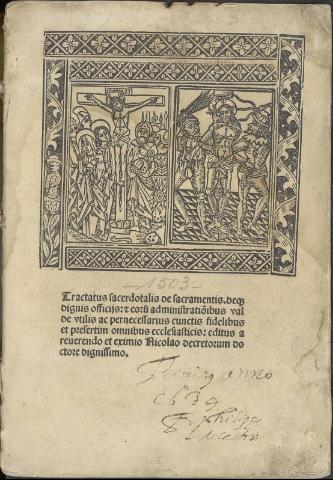 -1503-
Tractatus sacerdotalis de sacramentis. deqꝫ
dignis officijs: ⁊ eorũ administratiõibus val
de vtilis ac pernecessarius cunctis fidelibus
et presertim omnibus ecclesiasticis: editus a
reuerendo et eximio Nicolao decretorum do
ctore dignissimo.
anno
1639